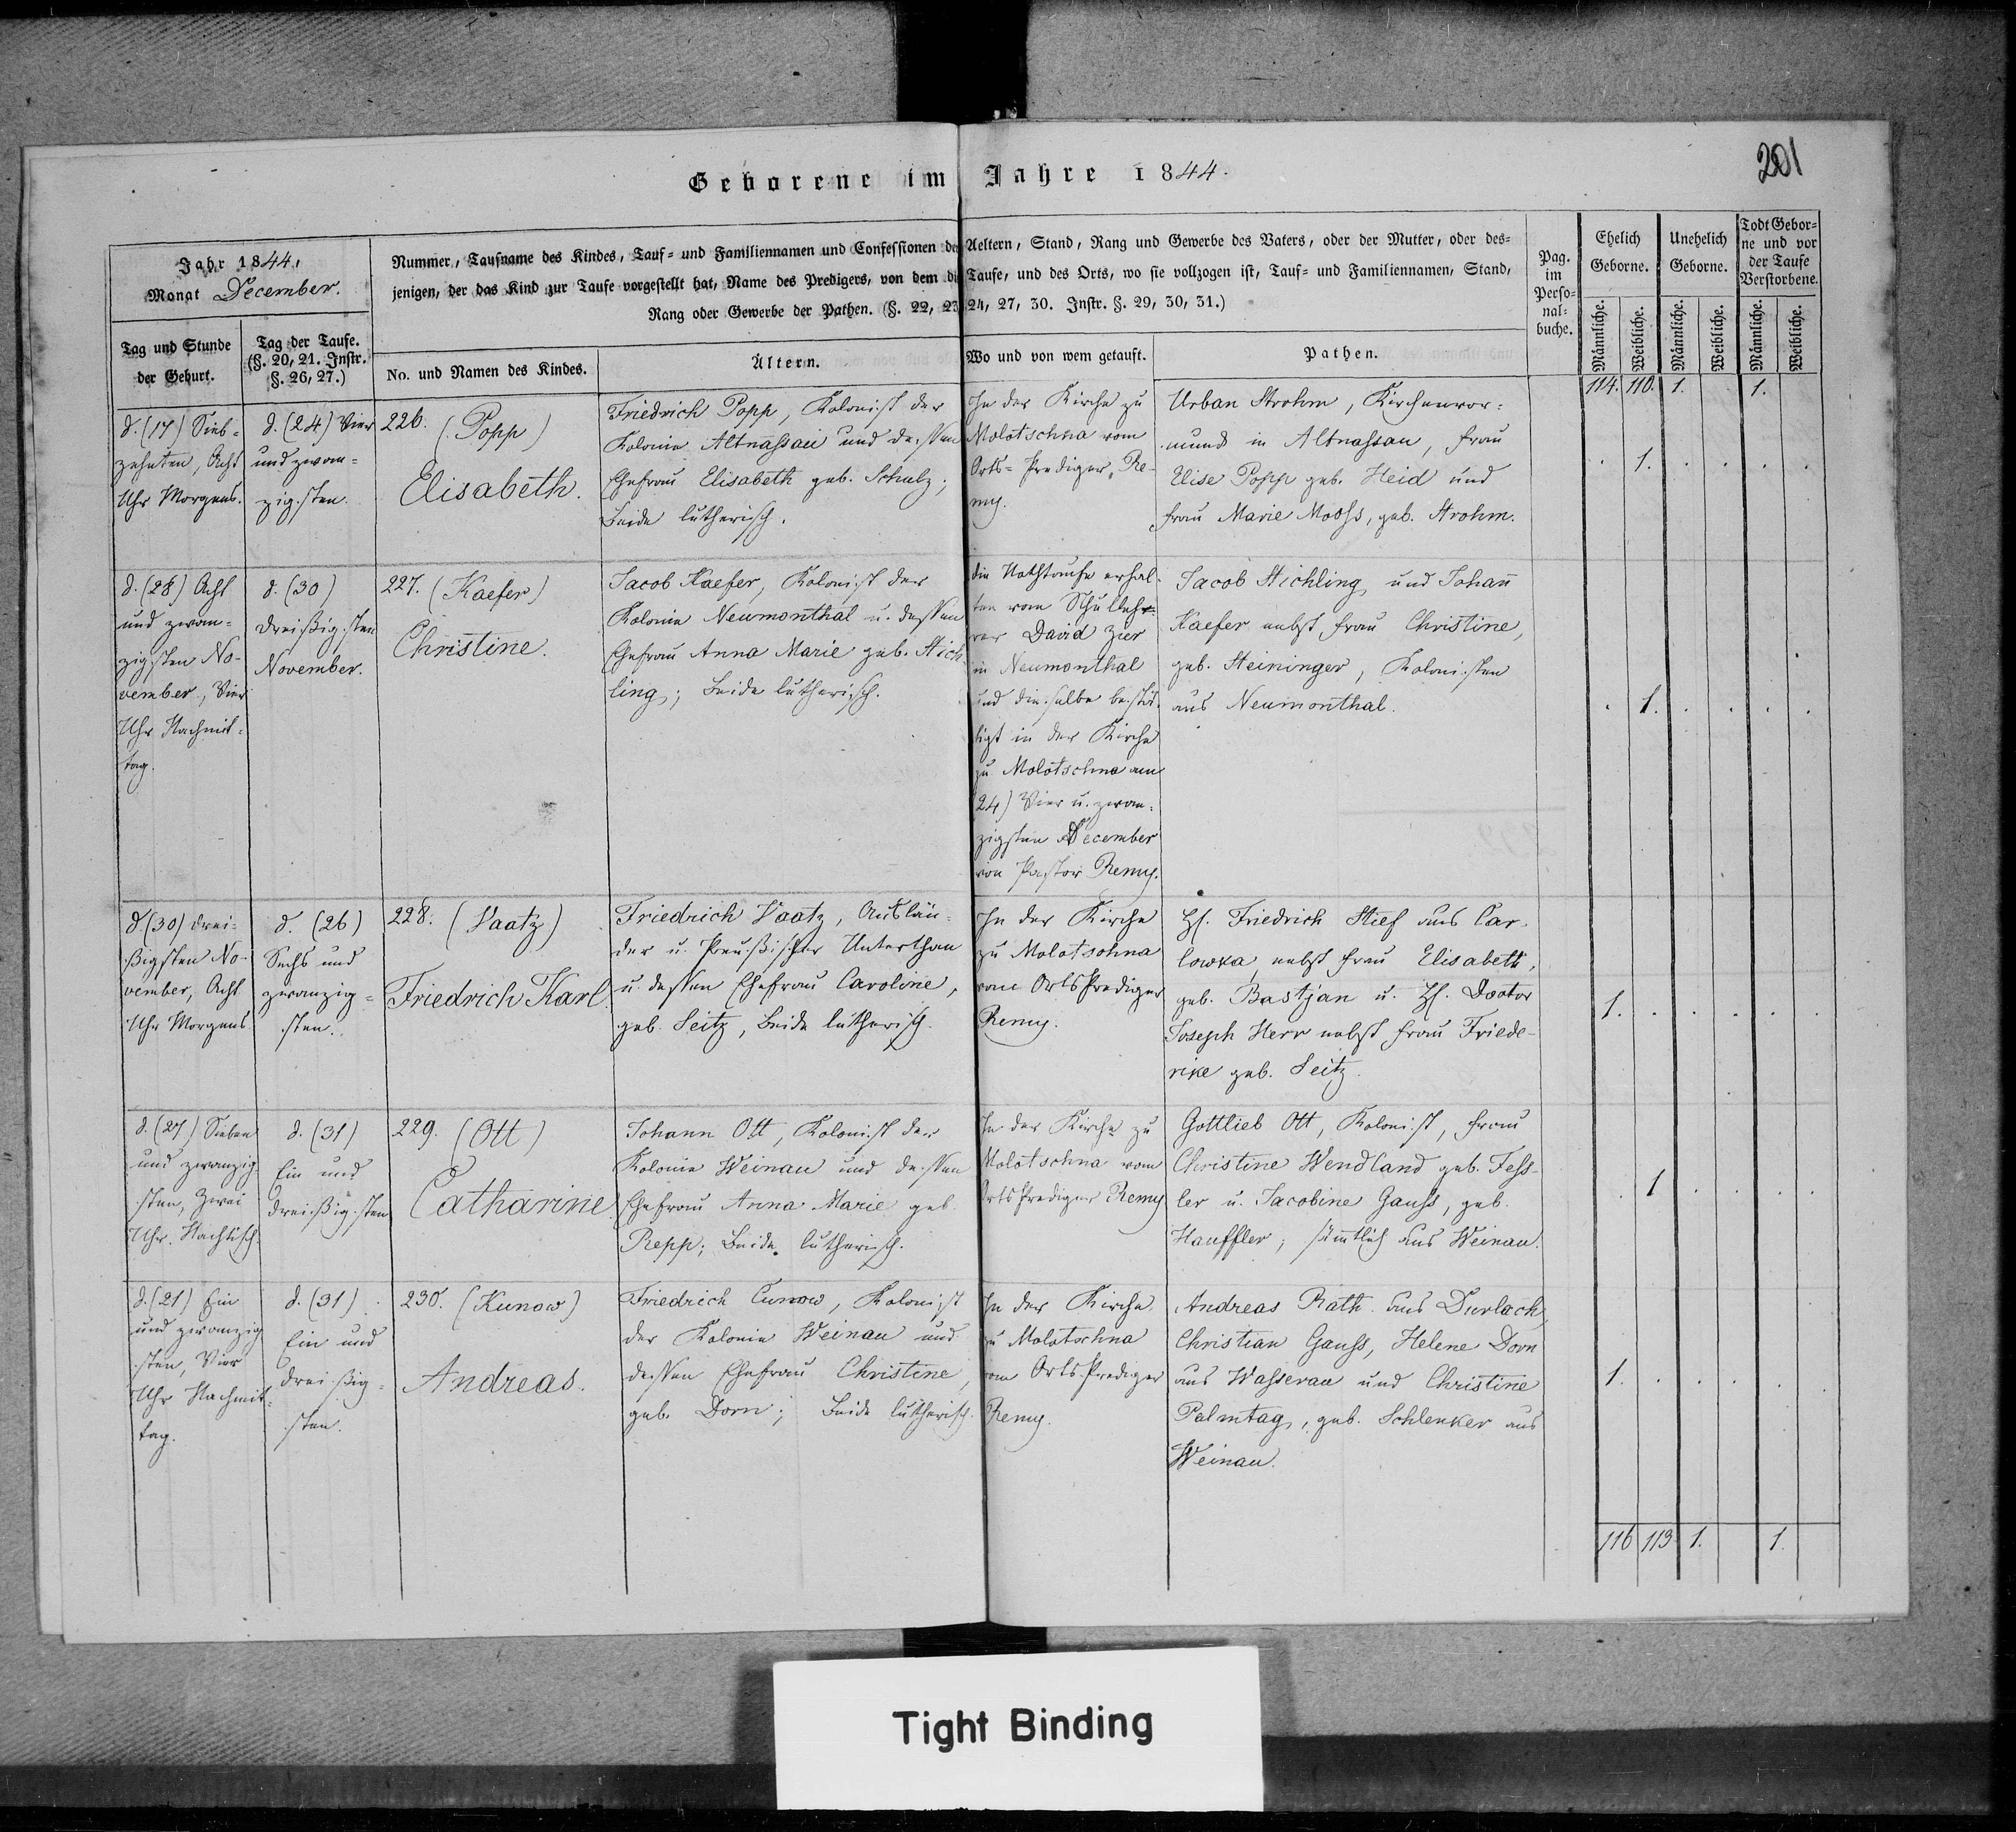 201
Geborene im Jahre 1844.
Jahr 1844,
Monat December.
Tag und Stunde
der Geburt.
Tag der Taufe.
(§. 20, 21. Instr.
§. 26, 27.)
Nummer, Taufname des Kindes, Tauf- und Familiennamen und Confessionen der Aeltern, Stand, Rang und Gewerbe des Vaters, oder der Mutter, oder des-
jenigen, der das Kind zur Taufe vorgestellt hat, Name des Predigers, von dem die Taufe, und des Orts, wo sie vollzogen ist, Tauf- und Familiennamen, Stand,
Rang oder Gewerbe der Pathen. (§. 22, 23 24, 27, 30. Instr. §. 29, 30, 31.)
No. und Namen des Kindes.
Ältern.
Wo und von wem getauft.
Pathen.
Pag.
im
Perso-
nal-
buche.
Ehelich
Geborne.
Unehelich
Geborne.
Todt Gebor-
ne und vor
der Taufe
Verstorbene.
Männliche.
Weibliche.
Männliche.
Weibliche.
Männliche.
Weibliche.
114. 110. 1. 1.
d. (17) Sieb-
zehnten, Acht
Uhr Morgens.
d. (24) Vier
und zwan-
zigsten.
226. (Popp)
Elisabeth.
Friedrich Popp, Kolonist der
Kolonie Altnassau und dessen
Ehefrau Elisabeth geb. Schulz;
Beide lutherisch.
In der Kirche zu
Molotschna vom
Orts-Prediger Re-
my.
Urban Strohm, Kirchenvor-
mund in Altnassau, Frau
Elise Popp geb. Heid und
Frau Marie Mooss, geb. Strohm.
1.
d. (28) Acht
und zwan-
zigsten No-
vember, Vier
Uhr Nachmit-
tag.
d. (30)
Dreißigsten
November.
227. (Kaefer)
Christine.
Jacob Kaefer, Kolonist der
Kolonie Neumonthal u. dessen
Ehefrau Anna Marie geb. Stich-
ling; Beide lutherisch.
die Nothtaufe erhal-
ten vom Schulleh-
rer David Zier
in Neumonthal
und dieselbe bestä-
tigt in der Kirche
zu Molotschna am
24) Vier u. zwan-
zigsten December
von Pastor Remy.
Jacob Stichling und Johann
Kaefer nebst Frau Christine,
geb. Steininger, Kolonisten
aus Neumonthal.
1.
d. (30) Drei-
ßigsten No-
vember, Acht
Uhr Morgens
d. (26)
Sechs und
zwanzig-
sten.
228. (Vaatz)
Friedrich Karl.
Friedrich Vaatz, Auslän-
der u. Preußischer Unterthan
u. dessen Ehefrau Caroline,
geb. Seitz, Beide lutherisch.
In der Kirche
zu Molotschna
vom Ortsprediger
Remy.
H. Friedrich Stief aus Car-
lowka nebst Frau Elisabeth,
geb. Bastjan u. H. Doctor
Joseph Herr nebst Frau Friede-
rike geb. Seitz.
1.
d. (27) Sieben
und zwanzig
sten, Zwei
Uhr
d. (31)
Ein und
dreißigsten
229. (Ott)
Catharine
Johann Ott, Kolonist der
Kolonie Weinau und dessen
Ehefrau Anna Marie geb.
Repp; Beide lutherisch.
In der Kirche zu
Molotschna vom
Ortsprediger Remy
Gottlieb Ott, Kolonist, Frau
Christine Wendland geb. Fess-
ler u. Jacobine Gauss, geb.
Hauffler; sämtlich aus Weinau.
1
d. (21) Ein
und zwanzig
sten, Vier
Uhr Nachmit-
tag.
d. (31)
Ein und
dreißig-
sten.
230. (Kunow)
Andreas.
Friedrich Cunow, Kolonist
der Kolonie Weinau und
dessen Ehefrau Christine,
geb. Dorn; Beide lutherisch.
In der Kirche
zu Molotschna
vom Ortsprediger
Remy.
Andreas Rath aus Durlach,
Christian Gauss, Helene Dorn
aus Wasserau und Christine
Palmtag, geb. Schlenker aus
Weinau.
1.
116 113 1. 1.
Tight Binding